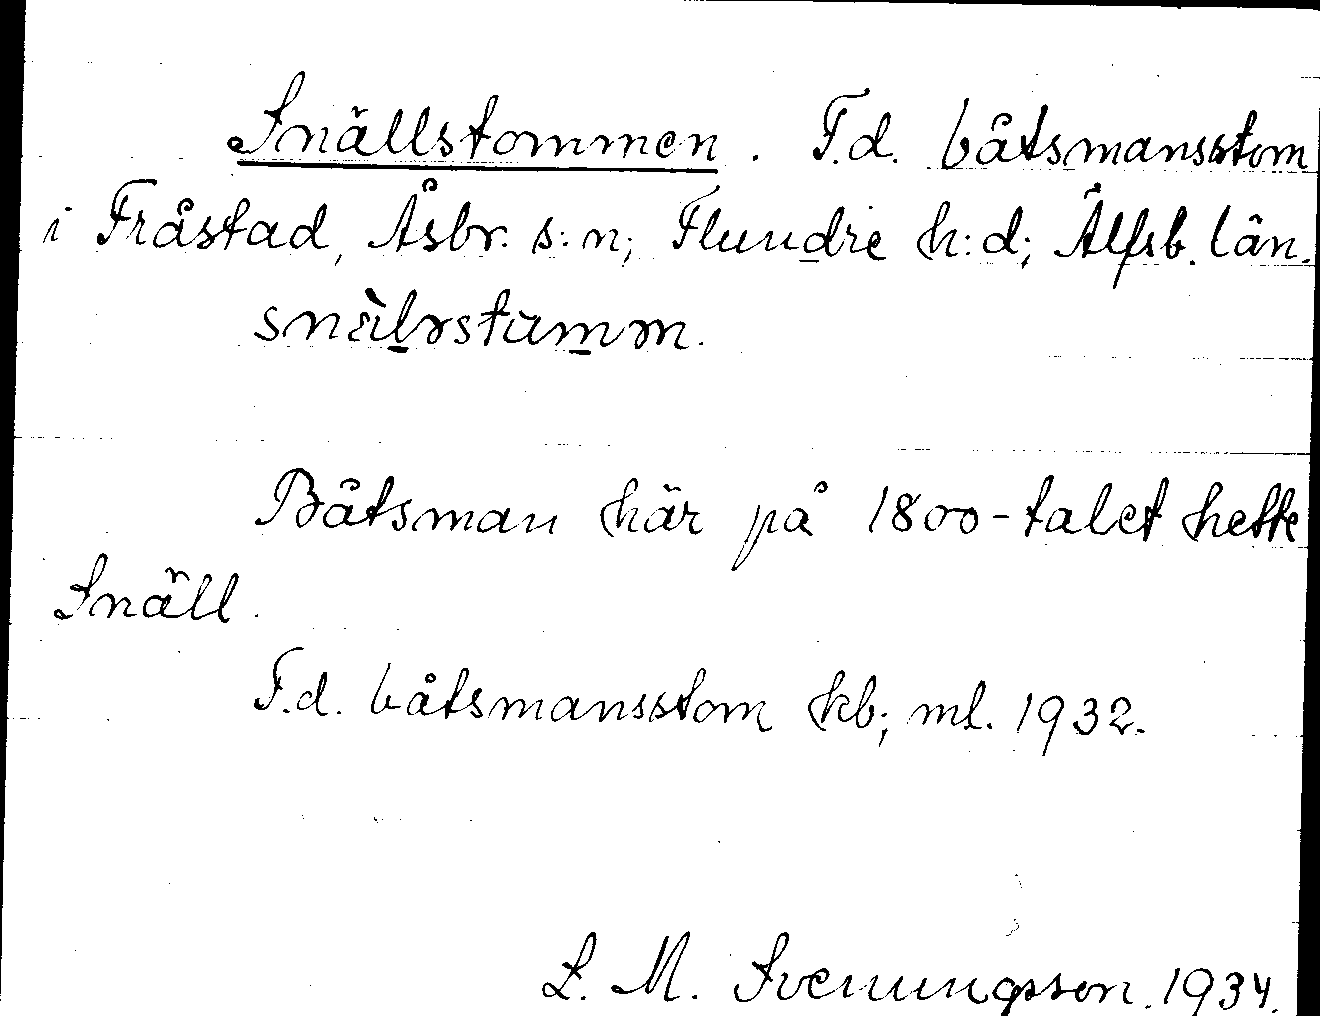 Snällstommen. F.d. båtsmansstom
i Fråstad, Åsbr. s:n; Flundre h:d; Älfsb. län.
Båtsman här på 1800-talet hette
Snäll.
F.d. båtsmansstom kb; ml. 1932.
S. M. Svenungsson. 1934.